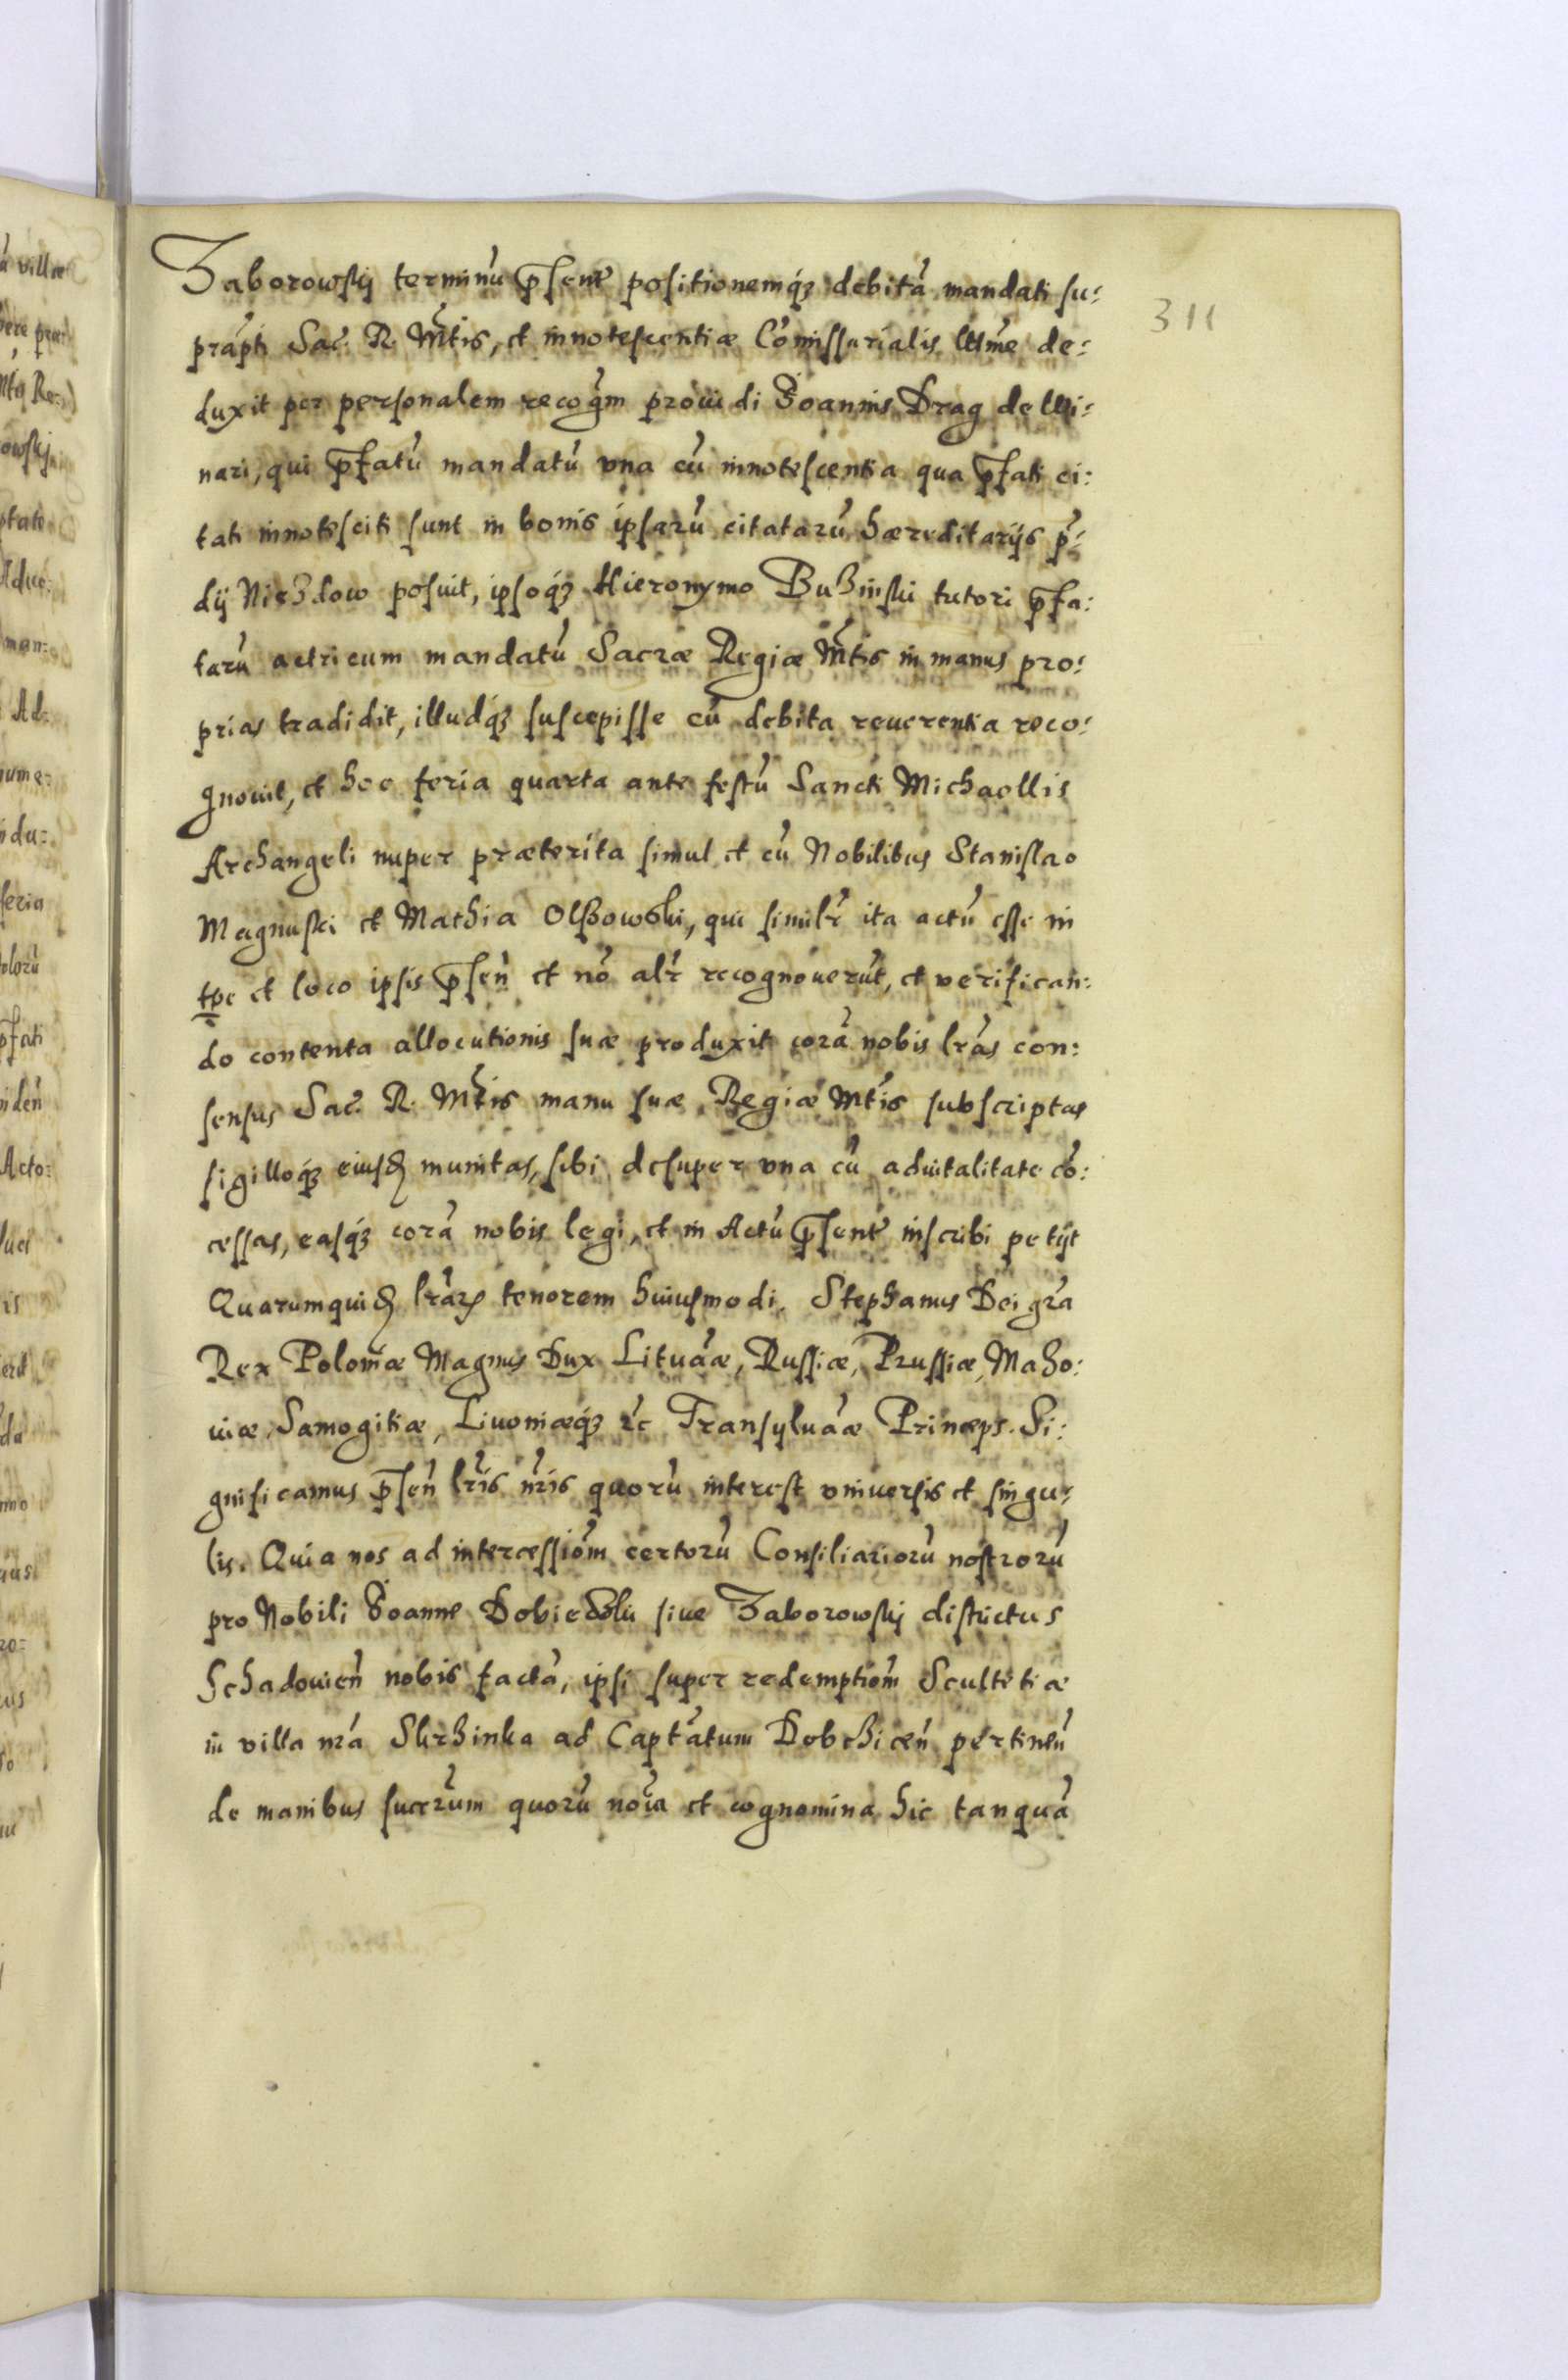 Zaborowskij terminũ p̃sentẽ positionemq́ʒ debitã mandati su:
praẽpti Sac. R. Mttis, et innotescentiæ Cõmissarialis lttme de:
duxit per personalem recogm̃ prouidi Joannis Drag de Wi:
nari, qui p̃fatũ mandatũ vna cũ innotescentia qua p̃fati ci:
tati innotesciti sunt in bonis ipsarũ citatarũ hæreditarijs p̃:
dij Niezdow posuit, ipsoq́ʒ Hieronymo Bużinski tutori p̃fa:
tarũ actricum mandatũ Sacræ Regiæ Mttis in manus pro:
prias tradidit, illudq́ʒ suscepisse cũ debita reuerentia reco:
gnouit, et hoc feria quarta ante festũ Sancti Michaellis
Archangeli nuper præterita simul et cũ Nobilibus Stanislao
Magnuski et Mathia Olszowski, qui similr̃ ita actũ esse in
tpe et loco ipsis p̃sen̄ et nõ alr̃ recognouerũt, et verifican:
do contenta allocutionis suæ produxit corã nobis lr̃as con:
sensus Sac. R. Mttis manu suæ Regiæ Mttis subscriptas
sigilloq́ʒ eiusd munitas, sibi desuper vna cũ aduitalitate cõ:
cessas, easq́ʒ corã nobis legi, et in Actũ p̃sentẽ inscribi petijt
Quarumquid lr̃arꝝ tenorem huiusmodi. Stephanus Dei gr̃a
Rex Poloniæ Magnus Dux Lituãæ, Russiæ, Prussiæ, Mazo:
uiæ, Samogitiæ, Liuoniæq́ʒ ꝛc Transyluãæ Princeps. Si:
gnificamus p̃sen̄ lr̃is nr̃is quorũ interest vniuersis et singu:
lis. Quia nos ad intercessiõm certorũ Consiliariorũ nostrorũ
pro Nobili Joanne Dobieczki siue Zaborowskij districtus
Schadouien̄ nobis factã, ipsi super redemptiõm Scultetiæ
in villa nr̃a Skrzinka ad Captãtum Dobchicen̄ pertinen̄
de manibus succr̃um quorũ noĩa et cognomina hic tanquã
311